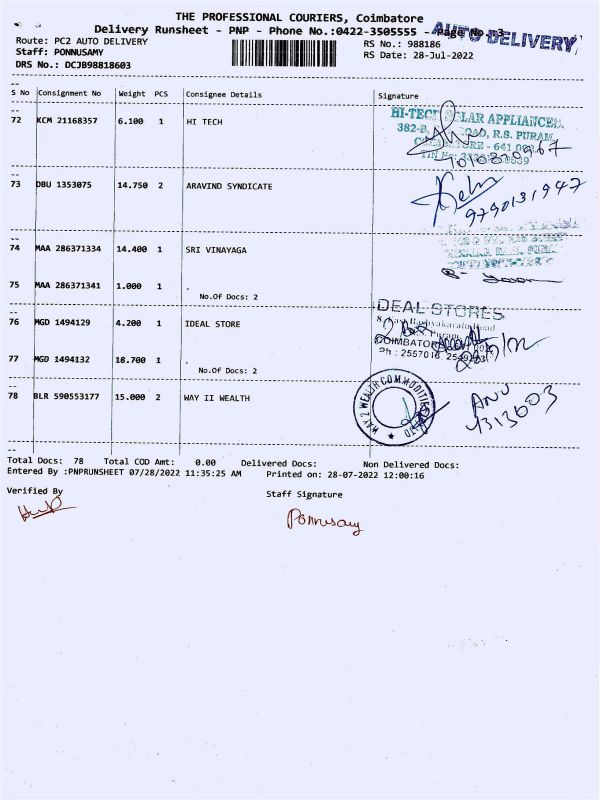 THE PROFESSIONAL COURIERS, Coimbatore
Delivery Runsheet - PNP - Phone No.:0422-3505555 - Page No. 3
AUTO DELIVERY
Route: PC2 AUTO DELIVERY
RS No.: 988186
Staff: PONNUSAMY
RS Date: 28-Jul-2022
DRS No.: DCJB98818603
S No Consignment No Weight PCS Consignee Details Signature
72 KCM 21168357 6.100 1 HI TECH
HI-TECH SOLAR APPLIANCES
382-B, ROAD, R.S. PURAM,
COIMBATORE - 641 002
73 DBU 1353075 14.750 2 ARAVIND SYNDICATE
9790131947
74 MAA 286371334 14.400 1 SRI VINAYAGA
75 MAA 286371341 1.000 1 .
No.Of Docs: 2
76 MGD 1494129 4.200 1 IDEAL STORE
IDEAL STORES
COIMBATORE
Ph : 2557016
77 MGD 1494132 18.700 1 .
No.Of Docs: 2
78 BLR 590553177 15.000 2 WAY II WEALTH
WAY 2 WEALTH COMMODITIES
ANU
1313603
Total Docs: 78 Total COD Amt: 0.00 Delivered Docs: Non Delivered Docs:
Entered By :PNPRUNSHEET 07/28/2022 11:35:25 AM Printed on: 28-07-2022 12:00:16
Verified By
Staff Signature
Ponnusamy